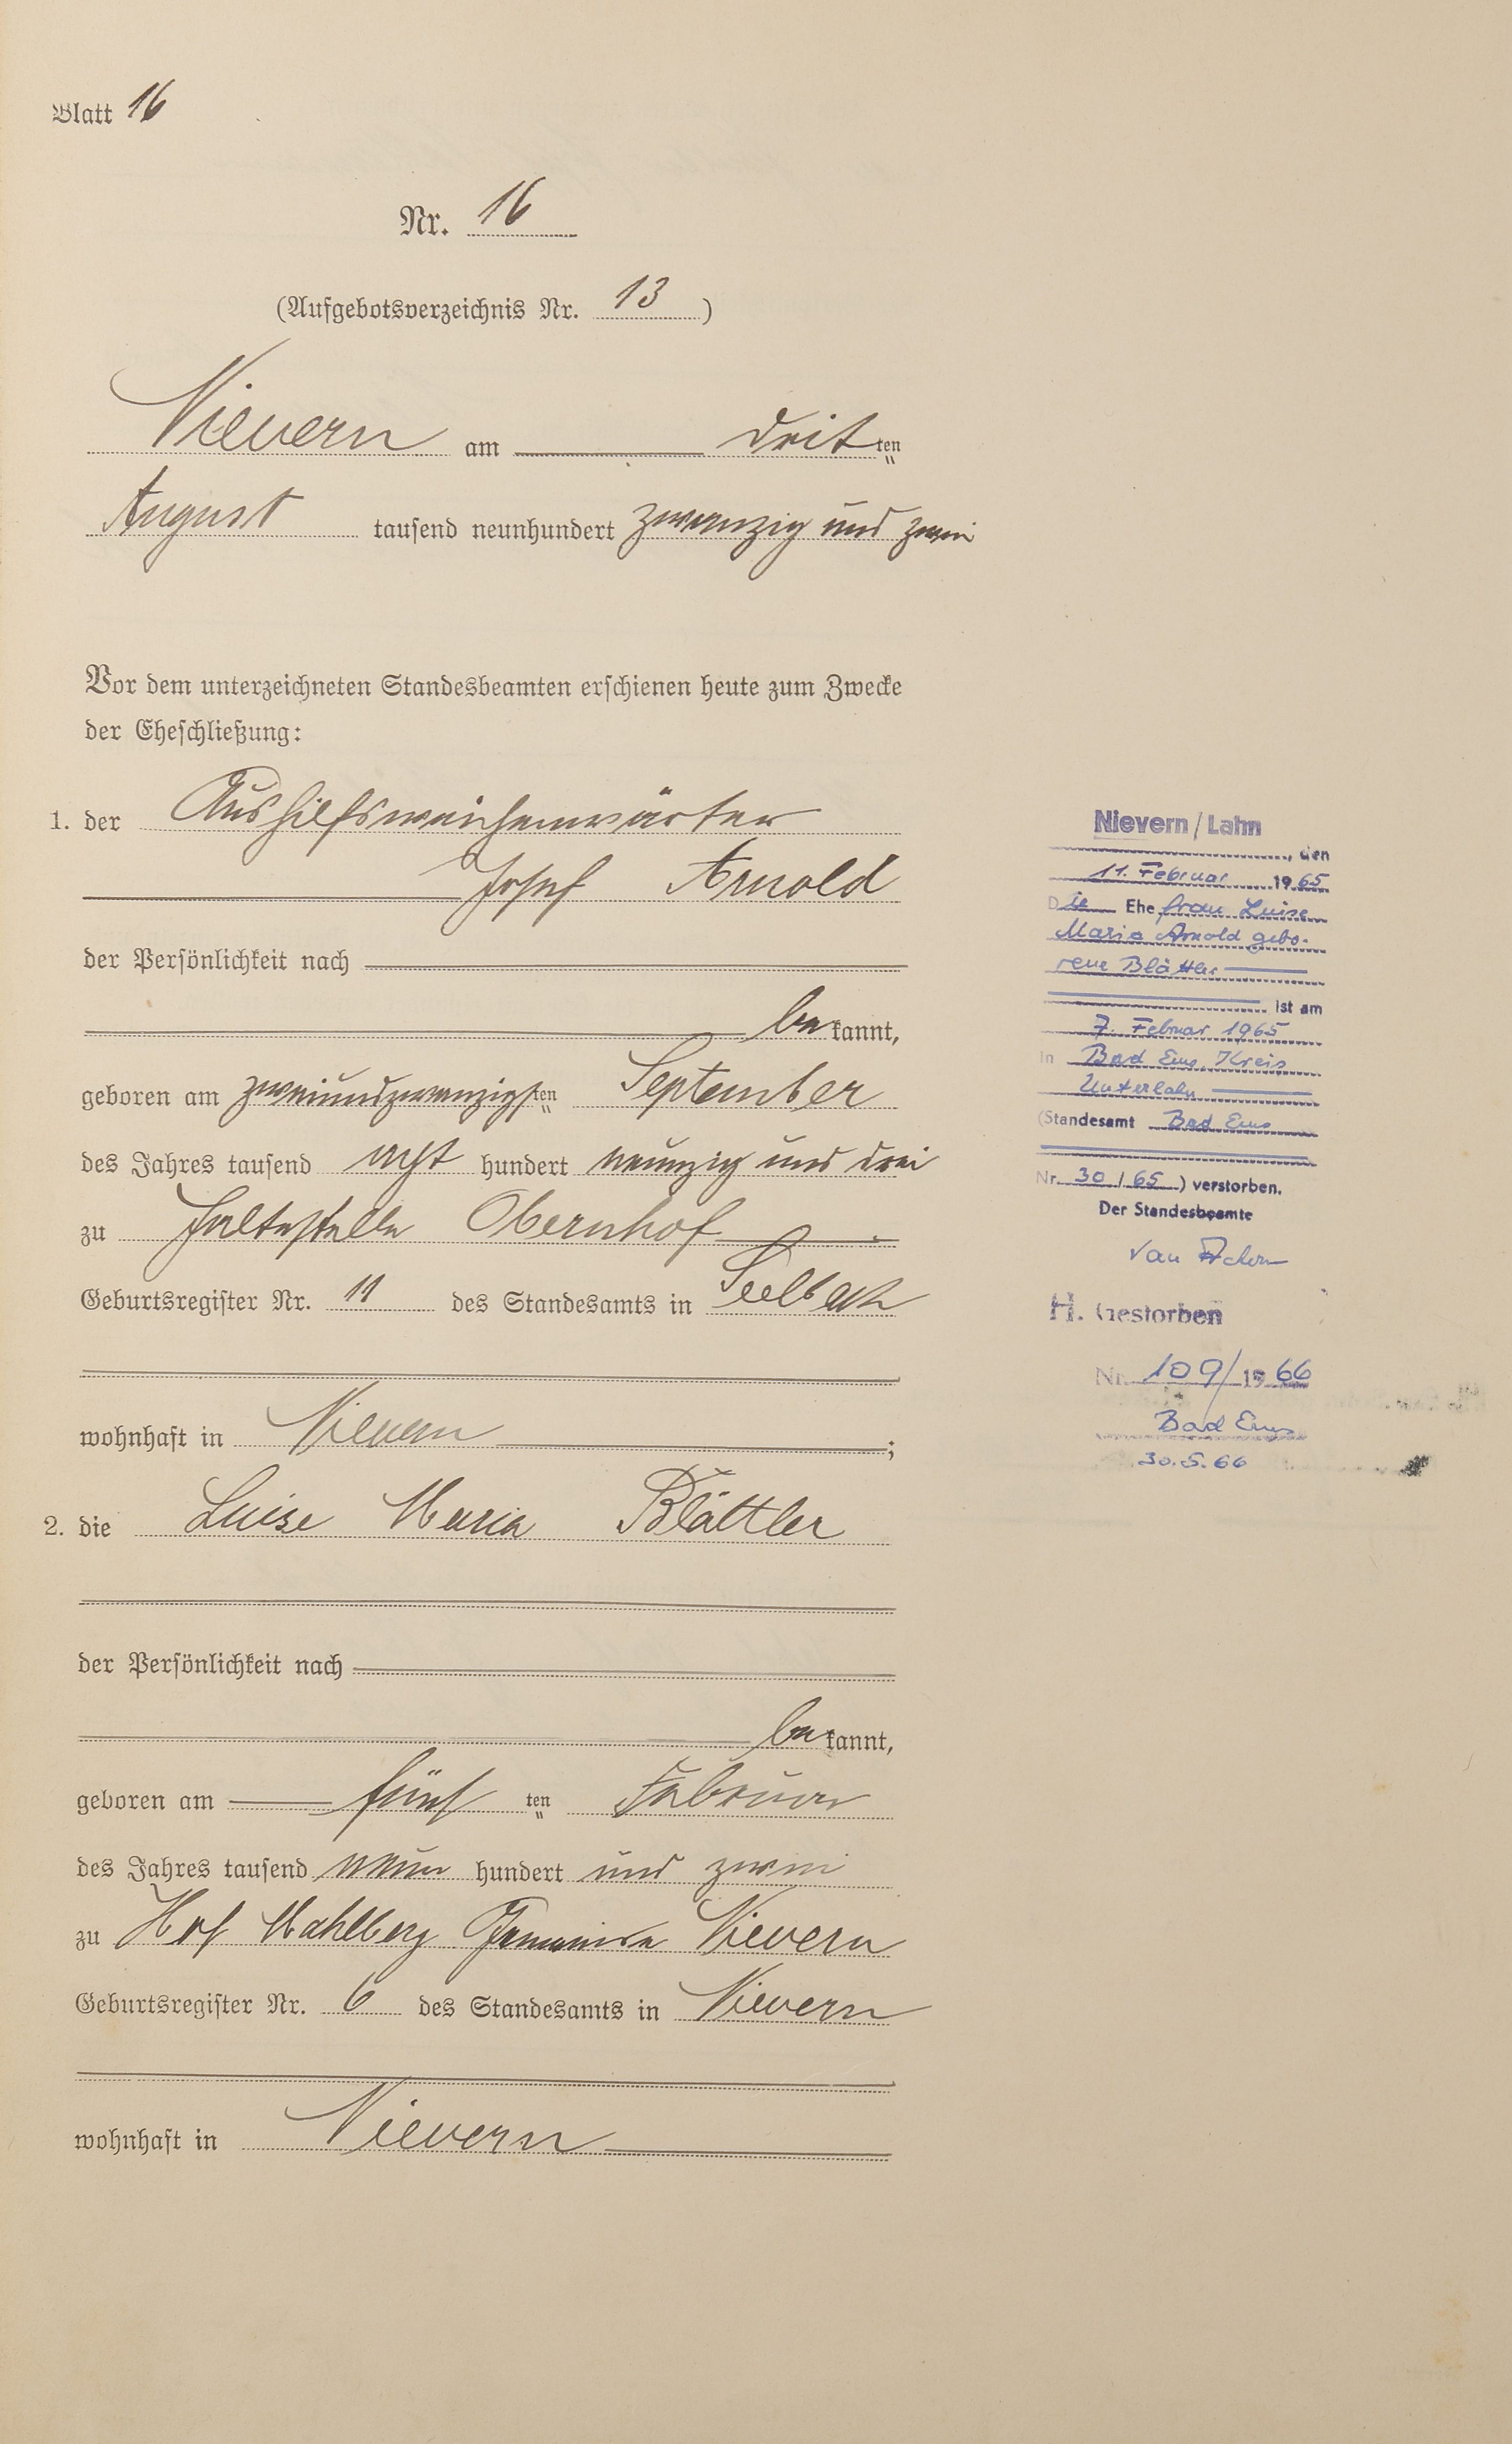 Blatt 16
Nr. 16
(Aufgebotsverzeichnis Nr. 13)
Nievern am dritten
August tausend neunhundert zwanzig und zwei
Vor dem unterzeichneten Standesbeamten erschienen heute zum Zwecke
der Eheschließung:
1. der Aushilfsweichenwärter
Josef Arnold
der Persönlichkeit nach
bekannt,
geboren am zweiundzwanzigsten September
des Jahres tausend acht hundert neunzig und drei
zu Haltestelle Obernhof
Geburtsregister Nr. 11 des Standesamts in Seelbach
wohnhaft in Nievern;
2. die Luise Maria Blättler
der Persönlichkeit nach
bekannt,
geboren am fünften Februar
des Jahres tausend neun hundert und zwei
zu Hof Mahlberg Gemeinde Nievern
Geburtsregister Nr. 6 des Standesamts in Nievern
wohnhaft in Nievern
Nievern/Lahn
, den
11. Februar 1965
Die Ehefrau Luise
Maria Arnold gebo-
rene Blättler
ist am
7. Februar 1965
in Bad Ems, Kreis
Unterlahn
(Standesamt Bad Ems
Nr. 30/65) verstorben.
Der Standesbeamte
van
H. Gestorben
Nr. 109/1966
Bad Ems
30.5.66